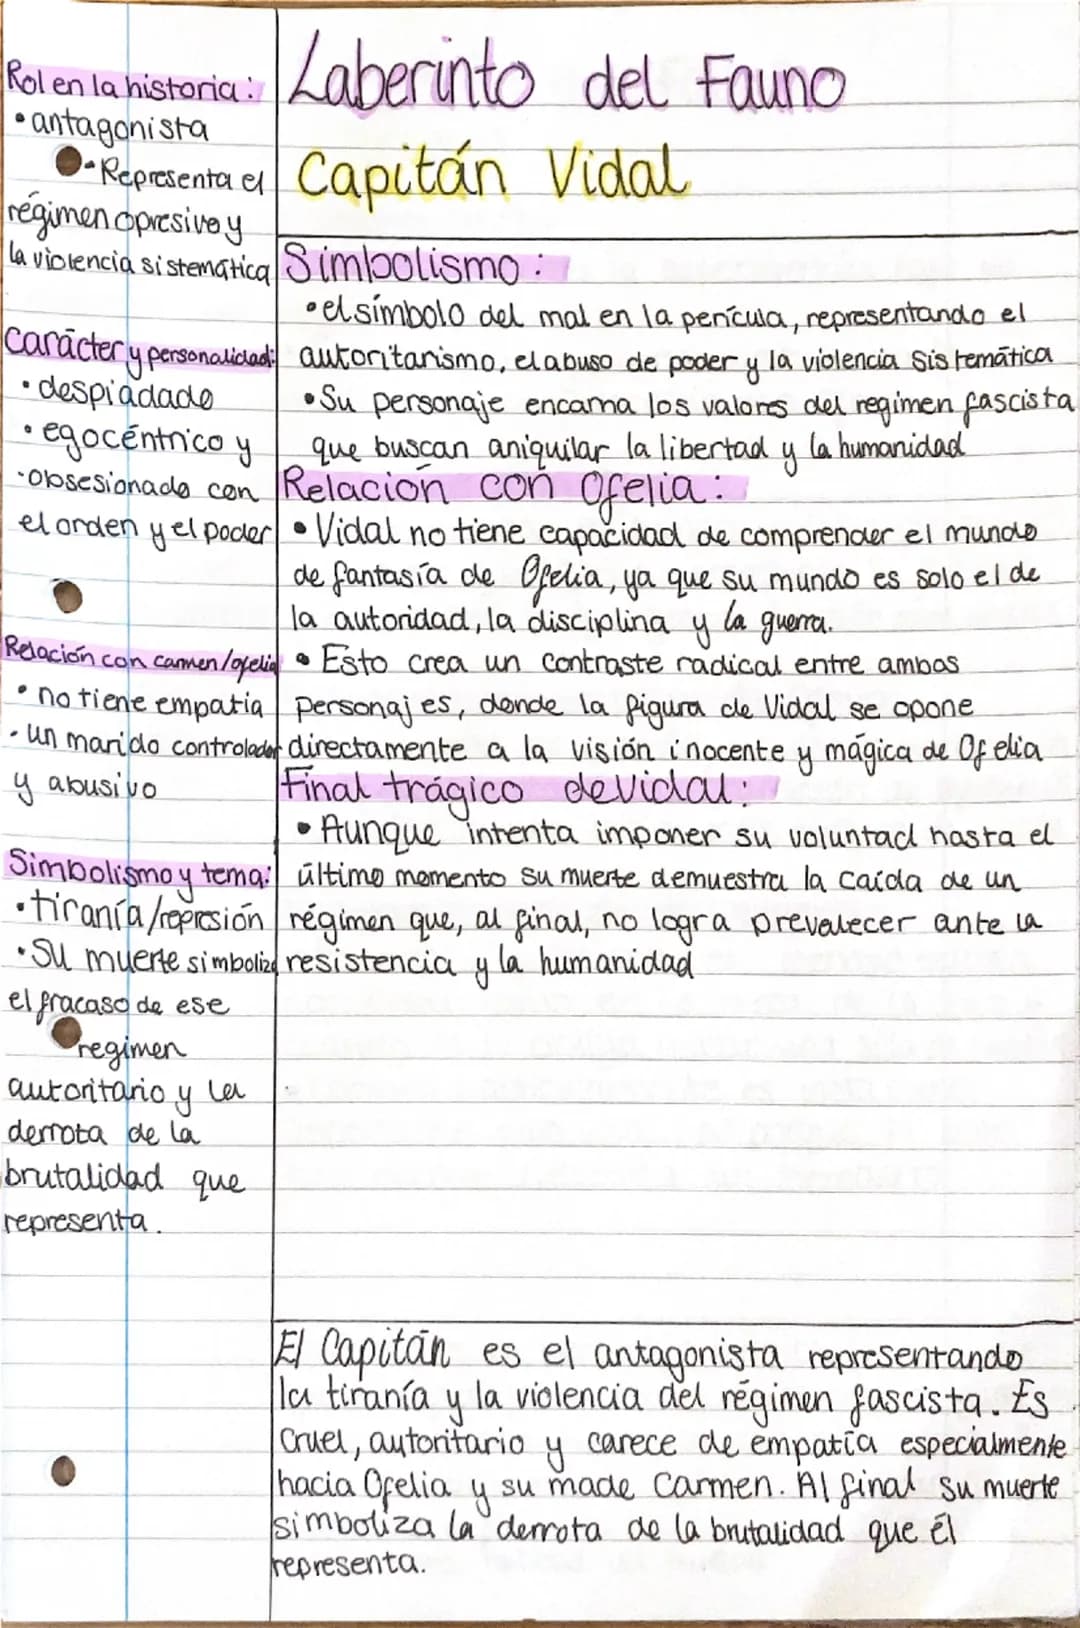 Laberinto del Fauno
Capitán Vidal
Rol en la historia:
• antagonista
- Representa el
régimen opresivo y
la violencia sistemática
Carácter y personalidad:
• despiadado
• egocéntrico y
• obsesionado con
el orden y el poder
Relación con carmen/ofelia
• no tiene empatia
• un marido controlador
y abusivo
Simbolismo y tema:
• tiranía/represión
• Su muerte simboliza
el fracaso de ese
regimen
autoritario y la
derrota de la
brutalidad que
representa.
Simbolismo:
• el símbolo del mal en la penícula, representando el
autoritarismo, el abuso de poder y la violencia Sistemática
• Su personaje encarna los valores del regimen fascista
que buscan aniquilar la libertad y la humanidad
Relación con Ofelia:
• Vidal no tiene capacidad de comprender el mundo
de fantasía de Ofelia, ya que su mundo es solo el de
la autoridad, la disciplina y la guerra.
• Esto crea un contraste radical entre ambos
personajes, donde la figura de Vidal se opone
directamente a la visión inocente y mágica de Ofelia
Final trágico de Vidal:
• Aunque intenta imponer su voluntad hasta el
último momento su muerte demuestra la caída de un
régimen que, al final, no logra prevalecer ante la
resistencia y la humanidad
El Capitán es el antagonista representando
la tiranía y la violencia del régimen fascista. Es
cruel, autoritario y carece de empatía especialmente
hacia Ofelia y su made Carmen. Al final su muerte
simboliza la derrota de la brutalidad que él
representa.